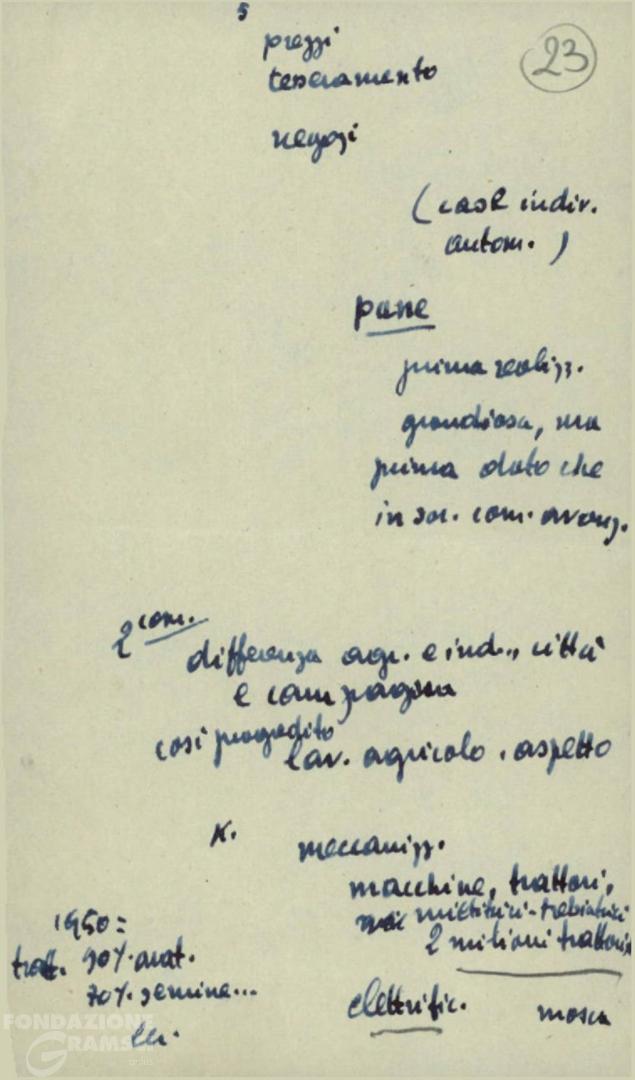 5
prezzi
23
tesseramento
negozi
(case indiv.
autom.)
pane
prima realizz.
grandiosa, ma
prima dato che
in soc. com. avanz.
2 com.
differenza agr. e ind., città
e campagna
così progredito
lav. agricolo. aspetto
K.
meccanizz.
macchine, trattori,
mietitrici-trebiatrici
2 milioni trattori
1950=
tratt. 90% arat.
70% semina...
ecc.
elettrific.
mosca
FONDAZIONE
GRAMSCI
onlus